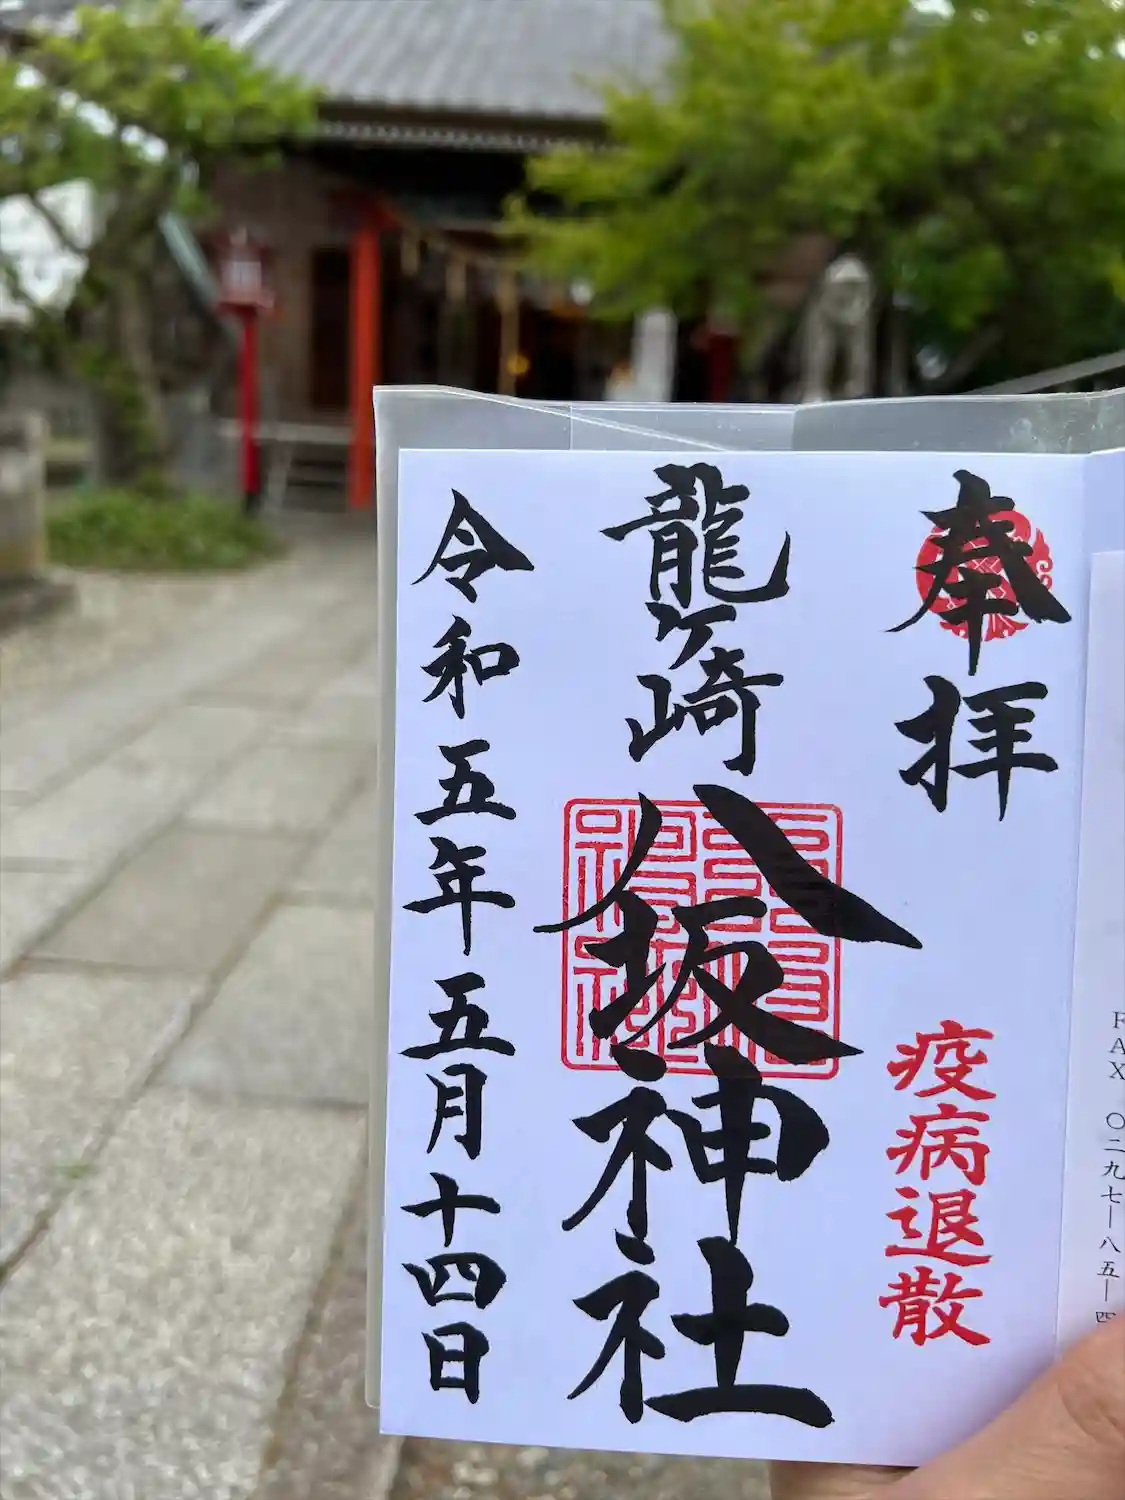 FAX 〇二九七—八五—四
奉拝
疫病退散
龍ヶ崎
八坂神社
令和五年五月十四日